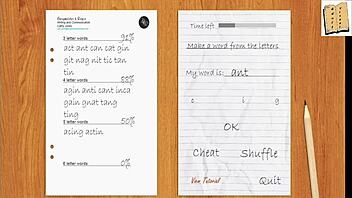 Writing and Communication
3 letter words 92%
act ant can cat gin
git nag nit tic tan
tin
4 letter words 88%
agin anti cant inca
gain gnat tang
ting
5 letter words 50%
acing actin
6 letter words 0%
Time left
Make a word from the letters
My word is: ant
c i g
OK
Cheat Shuffle
View Tutorial Quit